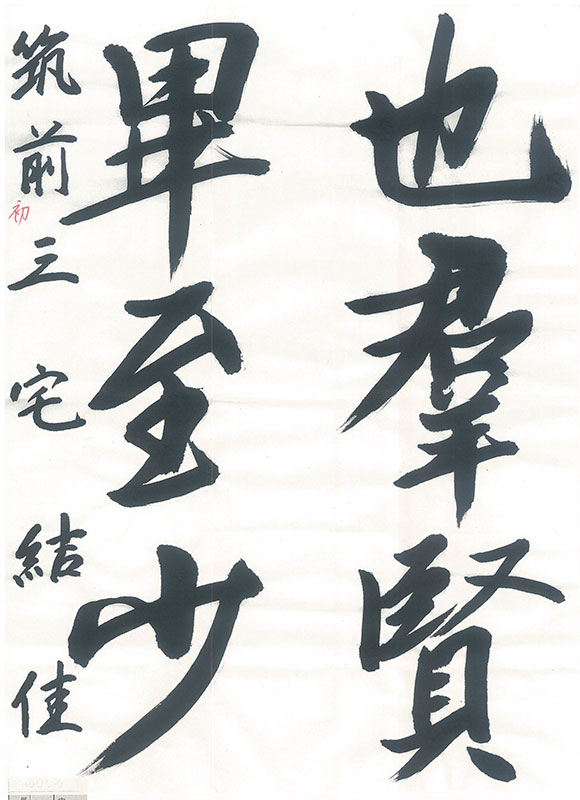 也羣賢
畢至少
筑前三宅結佳
初